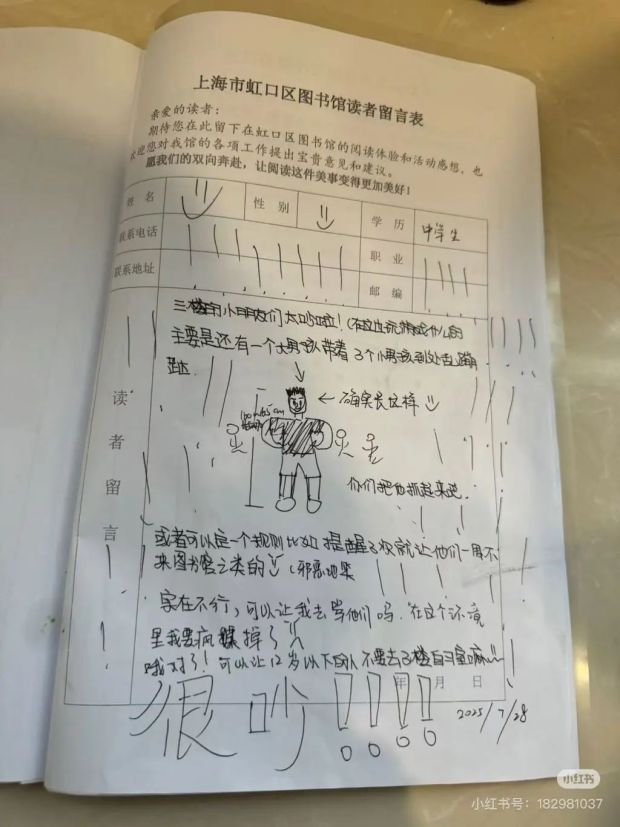 上海市虹口区图书馆读者留言表
亲爱的读者：
期待您在此留下在虹口区图书馆的阅读体验和活动感想，也
欢迎您对我馆的各项工作提出宝贵意见和建议。
愿我们的双向奔赴，让阅读这件美事变得更加美好！
姓 名 性 别 学 历 中学生
联系电话 职 业
联系地址 邮 编
读者留言
三楼的小朋友们太吵啦！（在这边玩游戏什么的
主要是还有一个大男孩带着3个小男孩到处乱蹦
跶
← 确实长这样
160~165cm
你们把他抓起来吧
或者可以定一个规则 比如 提醒3次就让他们一周不
来图书馆之类的 （邪恶地笑
实在不行，可以让我去管他们吗，在这个环境
里我要疯掉了
哦对了！可以让12岁以下的人不要去3楼自习室嘛
年 月 日
很吵！！！！
2025/7/28
小红书
小红书号：182981037